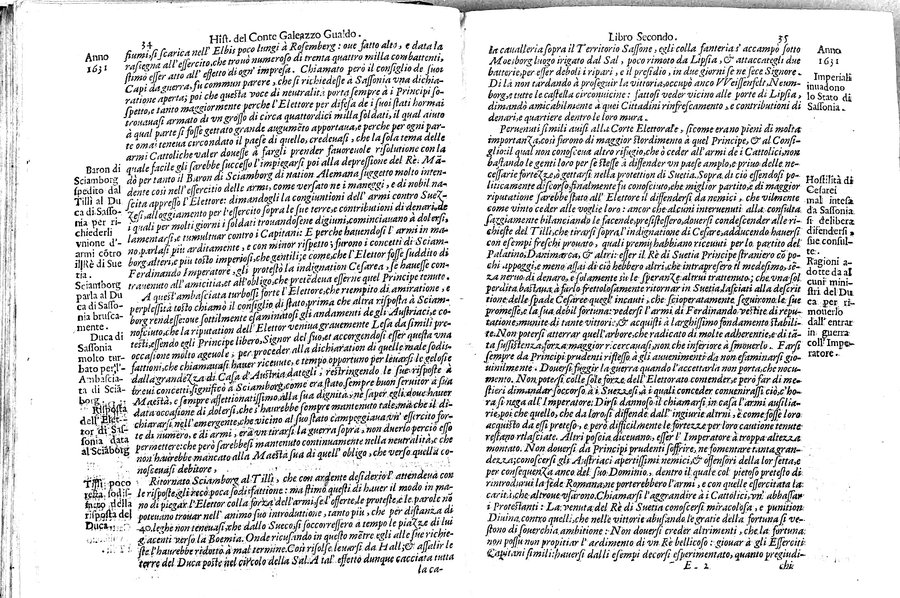 34 Hist. del Conte Galeazzo Gualdo.
Anno
1631
fiumi, si scarica nell' Elbis poco lungi à Rosemberg: oue fatto alto, e data la
rasegna all'essercito, che trouò numeroso di trenta quattro milla combattenti,
stimo esser atto all' effetto di ogn' impresa. Chiamato però il consiglio de suoi
Capi da guerra, fu commun parere, che si richiedesse à Sassonia vna dichia-
ratione aperta; poi che questa voce di neutralità porta sempre à i Principi so-
spetto, e tanto maggiormente perche l'Elettore per difesa de i suoi stati hormai
trouauasi armato di vn grosso di circa quattordici milla soldati, il qual aiuto
à qual parte si fosse gettato grande augumẽto apportaua, e perche per ogni par-
te omai teneua circondato il paese di quello, credeuasi, che la sola tema delle
armi Cattoliche valer douesse à fargli prender fauoreuole risolutione con la
quale facile gli sarebbe successo l'impiegarsi poi alla depressione del Rè. Mã-
dò per tanto il Baron di Sciamborg di nation Alemana suggetto molto inten-
dente così nell'essercitio delle armi, come versato ne i maneggi, e di nobil na-
scita appresso l'Elettore: dimandogli la congiuntioni dell' armi contro Suez-
zesi, alloggiamento per l'essercito sopra le sue terre, contributioni di denari, de
i quali per molti giorni i soldati trouandosene digiuni, cominciauano à dolersi,
lamentarsi, e tumultuar contro i Capitani: E perche hauendosi l'armi in ma-
no parlasi piu arditamente, e con minor rispetto; furono i concetti di Sciam-
borg alteri, e piu tosto imperiosi, che gentili; e come, che l'Elettore fosse suddito di
Ferdinando Imperatore, gli protestò la indignation Cesarea, se hauesse con-
trauenuto all'amicitia, et all'obligo, che pretẽdeua esserne quel Principe tenuto.
Baron di
Sciamborg
spedito dal
Tilli al Du
ca di Sasso-
nia per ri-
chiederli
vnione d'-
armi cõtro
il Rè di Sue
tia.
Sciamborg
parla al Du
ca di Sasso-
nia brusca-
mente.
A quest' ambasciata turbossi forte l'Elettore, che riempito di amiratione, e
perplessità tosto chiamò il consiglio di stato, prima che altra risposta à Sciam-
borg rendesse: oue sottilmente esaminatos gli andamenti de gli Austriaci, e co-
nosciuto, che la riputation dell' Elettor veniua grauemente Lesa da simili pro-
testi, essendo egli Principe libero, Signor del suo, et accorgendosi esser questa vna
occasione molto ageuole, per proceder alla dichiaration di quelle male sodis-
fattioni, che chiamauasi hauer riceuute, e tempo opportuno per leuarsi le gelosie
dalla grandezza di Casa d'Austria dategli, restringendo le sue risposte à
breui concetti significò a Sciamborg, come era stato sempre buon seruitor à sua
Maestà, e sempre affettionatissimo alla sua dignità, ne saper egli, doue hauer
data occasione di dolersi, che s'haurebbe sempre mantenuto tale, mà che il di-
chiararsi nell'emergente, che vicino al suo stato campeggiaua vn' essercito for-
te di numero, e di armi, era vn tirarsi la guerra sopra, non duerlo perciò esso
permettere: che però sarebbesi mantenuto continuamente nella neutralità, e che
non haurebbe mancato alla Maestà sua di quell' obligo, che verso quella co-
nosceuasi debitore,
Duca di
Sassonia
molto tur-
bato per l'-
Ambascia-
ta di Sciã-
borg.
Risposta
dell'Elet-
tor di Sas-
sonia data
al Sciãborg
Ritornato Sciamborg al Tilli, che con ardente desiderio l' attendeua con
le risposte, gli recò poca sodisfattione: ma stimo questi di hauer il modo in ma-
no di piegar l'Elettor colla forza dell'armi, se l'offerte, le proteste, e le parole nõ
poteuano trouar nell' animo suo introduttione, tanto più, che per distanza di
40. leghe non teneuasi, che dallo Sueco si soccorressero à tempo le piazze di lui
giacenti verso la Boemia. Onde ricusando in questo mẽtre egli alle sue richie-
ste l'haurebbe ridotto à mal termine. Così risolse leuarsi da Hall; & assalir le
terre del Duca poste nel circolo della Sal. A tal' effetto dunque cacciata tutta
la ca-
Tilli poco
resta sodis-
fatto della
risposta del
Duca.
Libro Secondo. 35
Anno
1631
la caualleria sopra il Territorio Sassone, egli colla fanteria s' accampò sotto
Moesborg luogo rigato dal Sal, poco rimoto da Lipsia, & attaccategli due
batterie, per esser deboli i ripari, e il presidio, in due giorni se ne rese Signore.
Di là non tardando à proseguir la vittoria, occupò anco Weissenfelt, Neum-
borg, e tutte le castella circonuicine: fattosi veder vicino alle porte di Lipsia,
dimandò amicabilmente à quei Cittadini rinfrescamento, e contributioni di
denari, e quartiere dentro le loro mura.
Imperiali
inuadono
lo Stato di
Sassonia.
Peruenuti simili auisi alla Corte Elettorale, si come eran pieni di molta
importanza, così furono di maggior stordimento à quel Principe, & al Consi-
glio il qual non conosceua altro rifugio, che ò ceder all' armi de i Cattolici, non
bastando le genti loro per se stesse à diffender vn paese ampio, e priuo delle ne-
cessarie fortezze, ò gettarsi nella protettion di Suetia. Sopra di ciò essendosi po-
liticamente discorso, finalmente fu conosciuto, che miglior partito, e di maggior
riputatione sarebbe stato all' Elettore il diffendersi da nemici, che vilmente
come vinto ceder alle voglie loro: ancor che alcuni interuenuti alla consulta
saggiamente bilanciando le facende, professassero, douersi condescender alle ri-
chieste del Tilli, che tirarsi sopra l'indignatione di Cesare, adducendo hauersi
con esempi freschi prouato, quali premij habbiano riceuuti per lo partito del
Palatino, Danimarca, & altri: esser il Rè di Suetia Principe straniero cõ po-
chi, appoggi, e meno assai di ciò hebbero altri, che intrapresero il medesimo, sẽ-
za neruo di denaro, e solamente sù le speranze altrui trattenuto; che vna sol
perdita bastaua, à farlo frettolosamente ritornar in Suetia, lasciati alla descrit-
tione delle spade Cesaree quegl' incauti, che scioperatamente seguirono le sue
promesse, e la sua debil fortuna: vedersi l'armi di Ferdinando vestite di repu-
tatione, munite di tante vittorie; & acquisti à larghissimo fondamento stabili-
te. Non potersi atterrar quell'arbore, che radicato di molte adherentie, e di tã-
ta sussistenza, forza maggior vi ricercauasi, non che inferiore à smouerlo. Farsi
sempre da Principi prudenti riflesso à gli auuenimenti da non esaminarsi gio-
uinilmente. Douersi fuggir la guerra quando l'accettarla non porta, che nocu-
mento. Non potersi colle sole forze dell'Elettorato contender, e però far di me-
stieri dimandar soccorso. à i Suezzesi, à i quali conceder conuenirassi ciò, c' ho-
ra si nega all' Imperatore: Dirsi dannoso il chiamarsi in casa l'armi ausilia-
rie, poi che quello, che da loro si diffende dall' ingiurie altrui, è come fosse loro
acquisto da essi preteso, e però difficilmente le fortezze per loro cautione tenute
restano rilasciate. Altri poscia diceuano, esser l' Imperatore à troppa altezza
montato. Non douersi da Principi prudenti soffrire, ne fomentare tanta gran-
dezza; conoscersi gli Austriaci apertissimi nemici, & offensori della lor setta, e
per consequenza anco del suo Dominio, dentro il quale col pietoso pretesto di
rintrodurui la fede Romana, ne porterebbero l'armi, e con quelle essercitata la
carità, che altroue vsarono. Chiamarsi l'aggrandire à i Cattolici, vn' abbassar
i Protestanti: La venuta del Rè di Suetia conoscersi miracolosa, e punition
Diuina contro quelli, che nelle vittorie abusando le gratie della fortuna s' ve-
stono di souerchia ambitione: Non douersi creder altrimenti, che la fortuna
non possi non propitiar l'ardimento di vn Rè bellicoso: giouar à gli Esserciti
Capitani simili: hauersi dalli esempi decorsi esperimentato, quanto pregiudi-
E 2 chi
Hostilità di
Cesarei
mal intesa
da Sassonia
si delibera
difendersi,
sue consul-
te.
Ragioni a-
dotte da al
cuni mini-
stri del Du
ca per ri-
mouerlo
dall'entrar
in guerra
coll'Impe-
ratore.